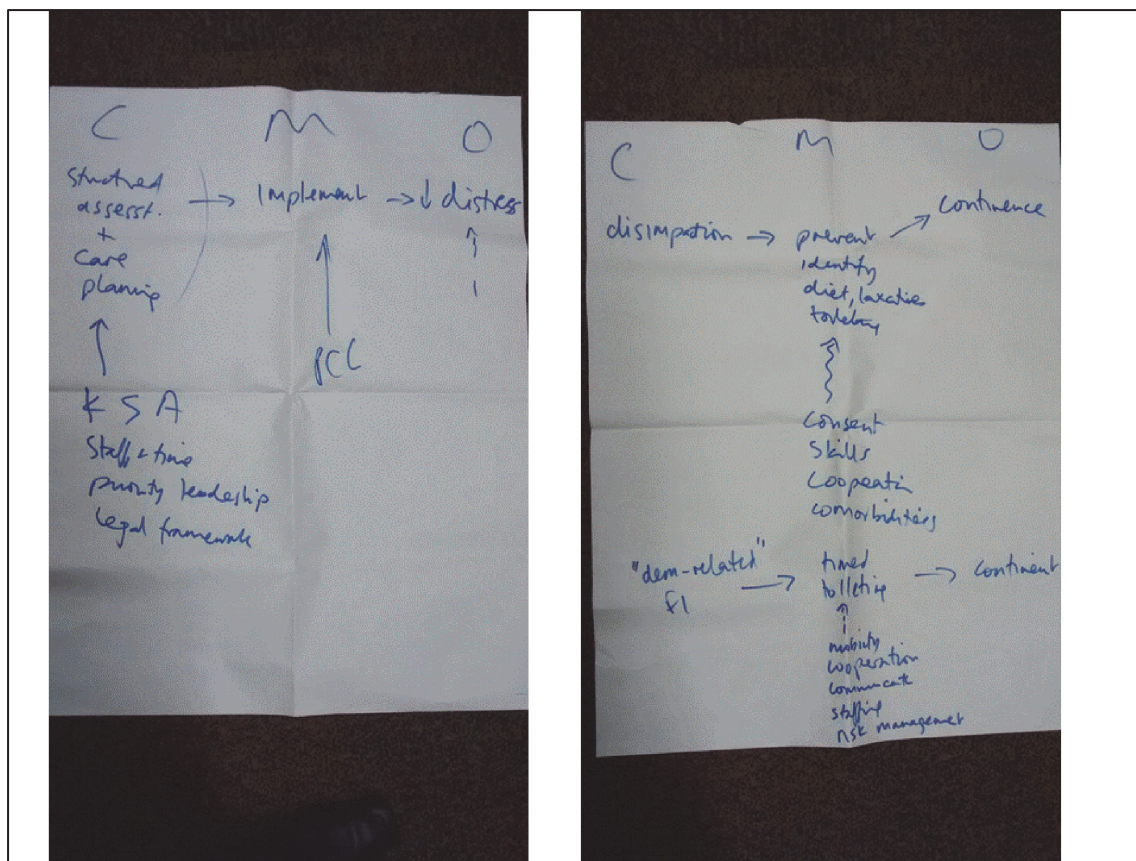 C M O
structured
assesst.
+
care
planning
→ implement → ↓ distress
PCC
K S A
Staff + time
priority leadership
legal framework
C M O
disimpaction → prevent → continence
identify
diet, laxatives
toileting
consent
skills
cooperation
comorbidities
"dem-related" → timed → continent
FI toileting
mobility
cooperation
communicate
staffing
risk management